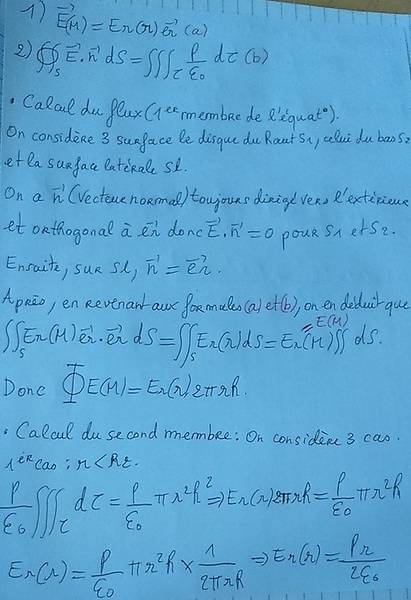 1) E⃗(M) = Er(r) e⃗r (a)
2) ∯S E⃗.n⃗ dS = ∭τ ρ/ε0 dτ (b)
• Calcul du flux (1er membre de l'équat°).
On considère 3 surface le disque du haut S1, celui du bas S2
et la surface latérale Sl.
On a n⃗ (vecteur normal) toujours dirigé vers l'extérieur
et orthogonal à e⃗r donc E⃗.n⃗ = 0 pour S1 et S2.
Ensuite, sur Sl, n⃗ = e⃗r.
Après, en revenant aux formules (a) et (b), on en déduit que
∬S Er(M) e⃗r.e⃗r dS = ∬S Er(r) dS = Er(M) ∬ dS.
= E(M)
Donc ΦE(M) = Er(r) 2πrh.
• Calcul du second membre : On considère 3 cas.
1er cas : r < R2.
ρ/ε0 ∭τ dτ = ρ/ε0 πr²h² ⇒ Er(r) 2πrh = ρ/ε0 πr²h
Er(r) = ρ/ε0 πr²h × 1/2πrh ⇒ Er(r) = ρr/2ε0